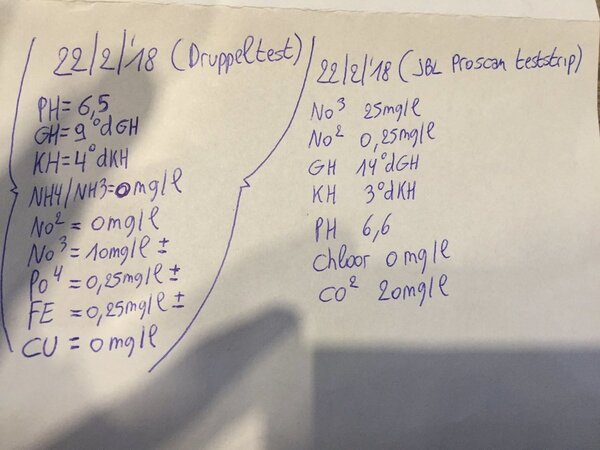 22/2/'18 (Druppeltest)
PH = 6,5
GH = 9°dGH
KH = 4°dKH
NH4/NH3 = 0mg/l
No² = 0mg/l
No³ = 10mg/l ±
Po⁴ = 0,25mg/l ±
FE = 0,25mg/l ±
CU = 0mg/l
22/2/'18 (JBL Proscan teststrip)
No³ 25mg/l
No² 0,25mg/l
GH 14°dGH
KH 3°dKH
PH 6,6
Chloor 0mg/l
CO² 20mg/l